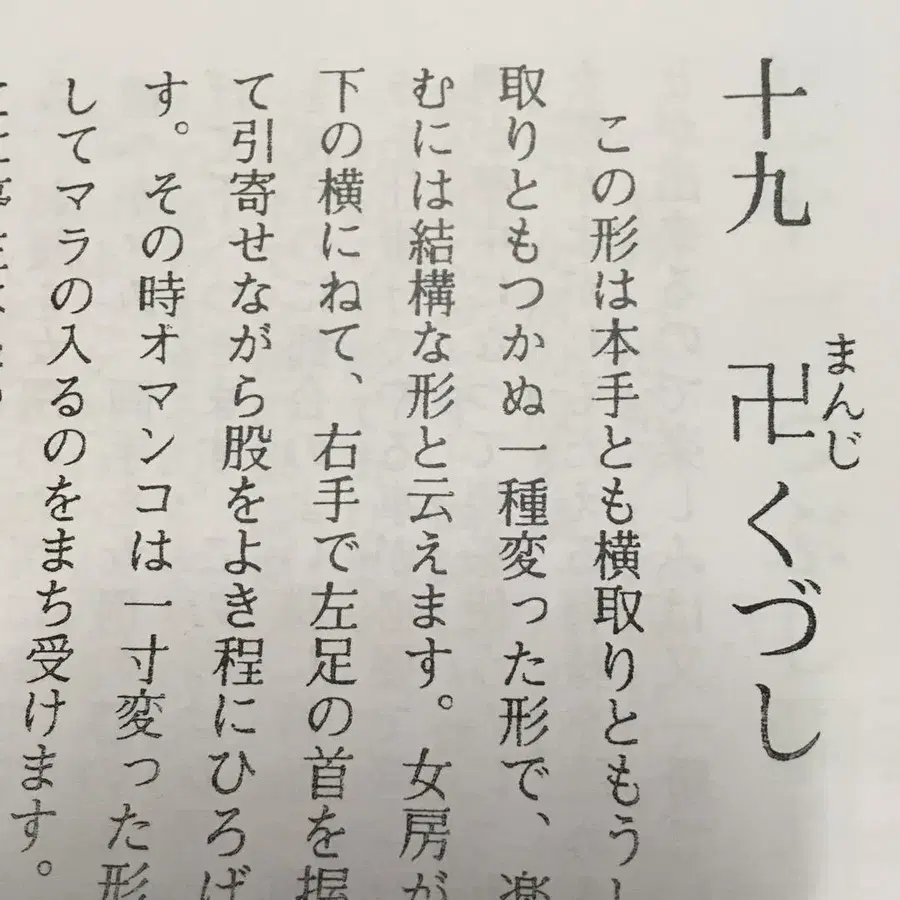 十九 卍くづし
まんじ
この形は本手とも横取りともうし
取りともつかぬ一種変った形で、楽
むには結構な形と云えます。女房が
下の横にねて、右手で左足の首を握
て引寄せながら股をよき程にひろげ
す。その時オマンコは一寸変った形
してマラの入るのをまち受けます。